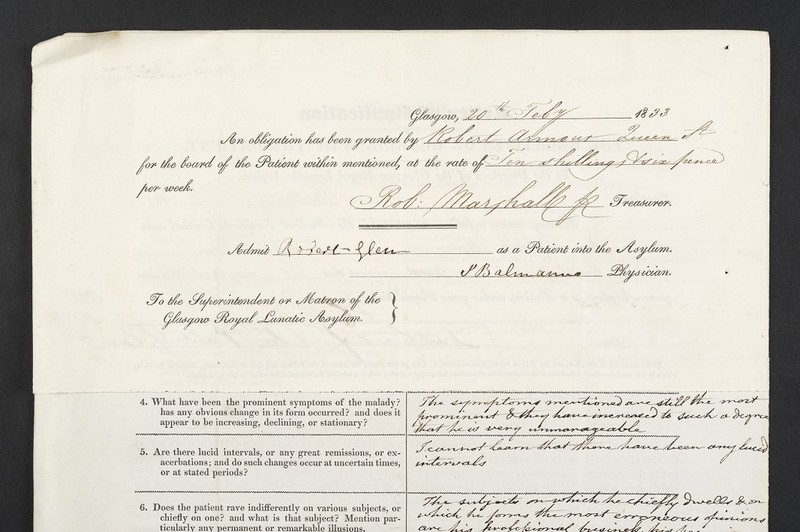 Glasgow, 20th Feby 1833
An obligation has been granted by Robert Armour Queen St
for the board of the Patient within mentioned, at the rate of Ten shillings & six pence
per week.
Rob. Marshall Treasurer.
Admit Robert Glen as a Patient into the Asylum.
J Balmanno Physician.
To the Superintendent or Matron of the
Glasgow Royal Lunatic Asylum.
4. What have been the prominent symptoms of the malady?
has any obvious change in its form occurred? and does it
appear to be increasing, declining, or stationary?
The symptoms mentioned are still the most
prominent & they have increased to such a degree
that he is very unmanageable
5. Are there lucid intervals, or any great remissions, or ex-
acerbations; and do such changes occur at uncertain times,
or at stated periods?
I cannot learn that there have been any lucid
intervals
6. Does the patient rave indifferently on various subjects, or
chiefly on one? and what is that subject? Mention par-
ticularly any permanent or remarkable illusions.
The subjects on which he chiefly dwells & on
which he forms the most erroneous opinions
are his professional business, his